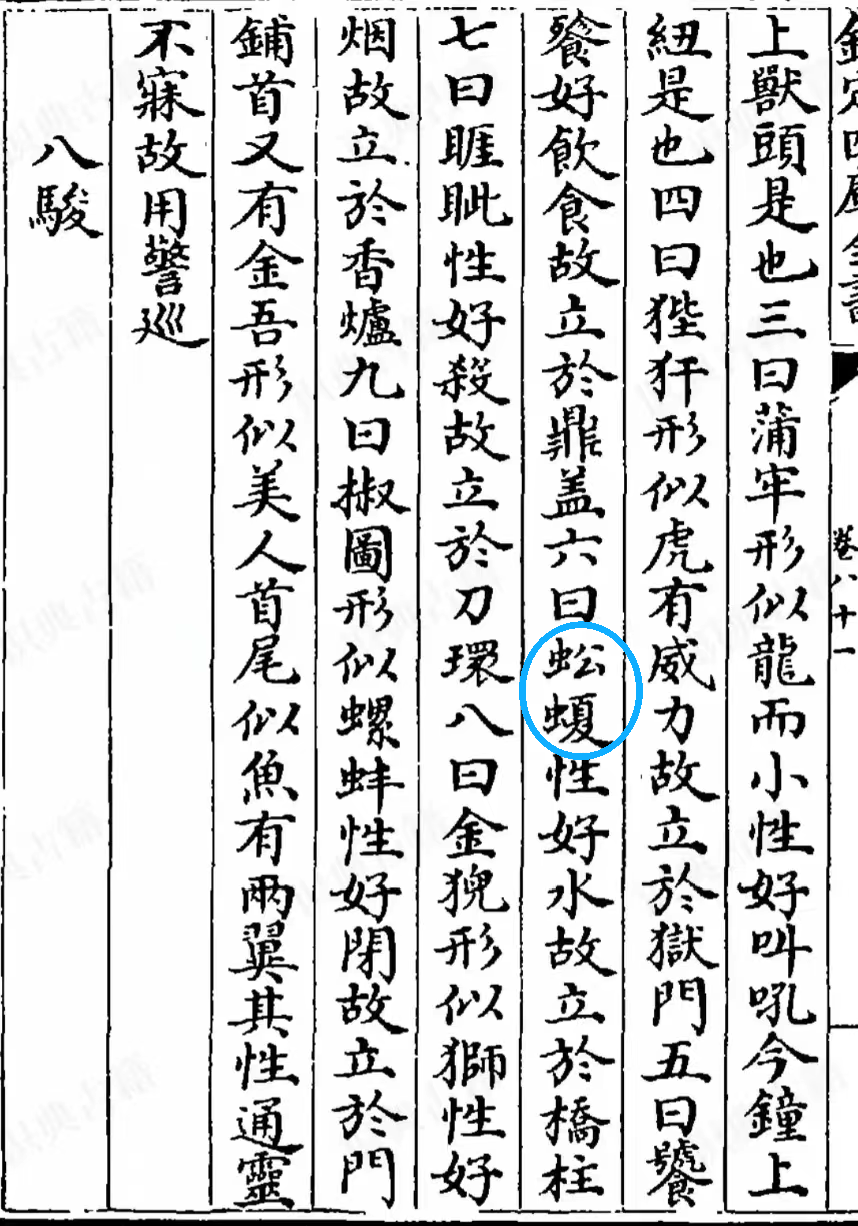 欽定四庫全書
卷八十一
上獸頭是也三曰蒲牢形似龍而小性好叫吼今鐘上
紐是也四曰狴犴形似虎有威力故立於獄門五曰饕
餮好飲食故立於鼎盖六曰蚣𧏡性好水故立於橋柱
七曰睚眦性好殺故立於刀環八曰金猊形似獅性好
烟故立於香爐九曰椒圖形似螺蚌性好閉故立於門
鋪首又有金吾形似美人首尾似魚有兩翼其性通靈
不寐故用警巡
八駿